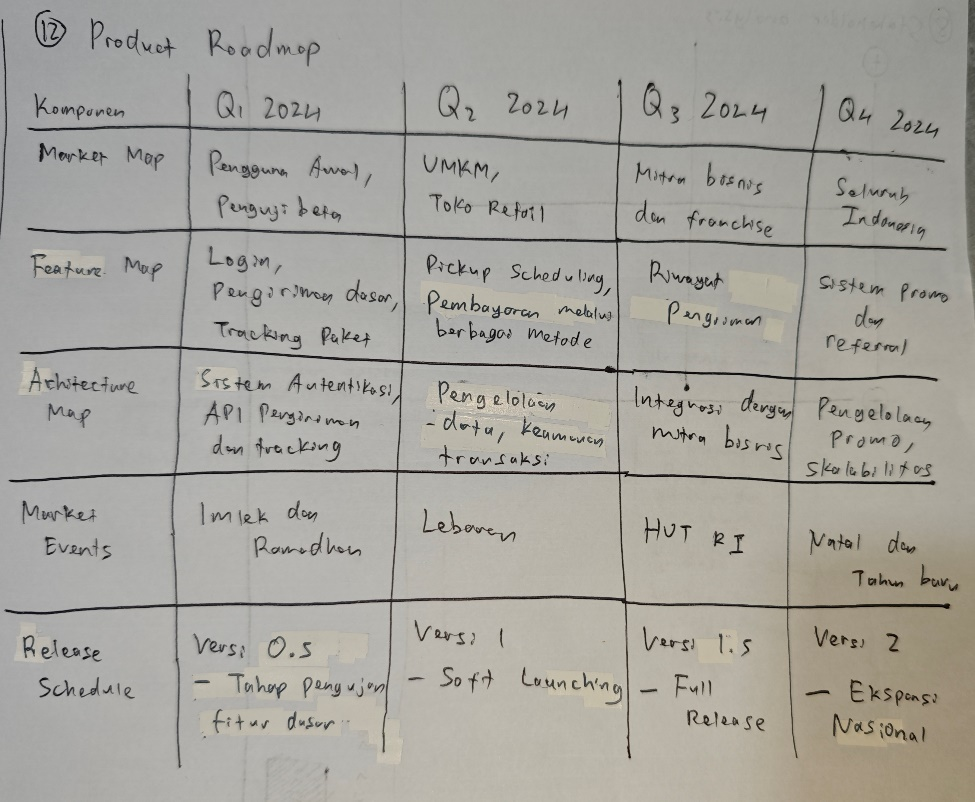 12 Product Roadmap
Komponen
Q1 2024
Q2 2024
Q3 2024
Q4 2024
Market Map
Pengguna Awal,
Penguji beta
UMKM,
Toko Retail
Mitra bisnis
dan franchise
Seluruh
Indonesia
Feature Map
Login,
Pengiriman dasar,
Tracking Paket
Pickup Scheduling,
Pembayaran melalui
berbagai metode
Riwayat
Pengiriman
Sistem Promo
dan
referral
Architecture
Map
Sistem Autentikasi,
API Pengiriman
dan tracking
Pengelolaan
- data, keamanan
transaksi
Integrasi dengan
mitra bisnis
Pengelolaan
Promo,
Skalabilitas
Market
Events
Imlek dan
Ramadhan
Lebaran
HUT RI
Natal dan
Tahun baru
Release
Schedule
Versi 0.5
- Tahap pengujian
fitur dasar
Versi 1
- Soft Launching
Versi 1.5
- Full
Release
Versi 2
- Ekspansi
Nasional